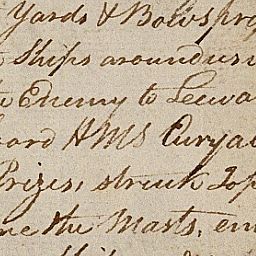 Yards & Bowspr
Ships around us
Enemy to Leewa
oard HMS Eurya
Prizes, struck Top
me the Masts, em